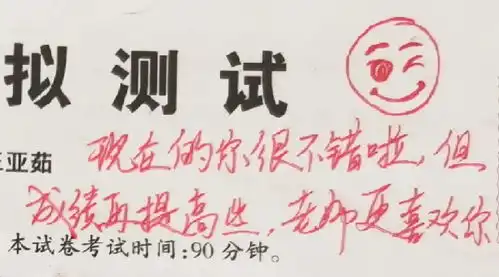 拟测试
亚茹 现在的你很不错啦,但
成绩再提高些,老师更喜欢你
本试卷考试时间:90分钟。